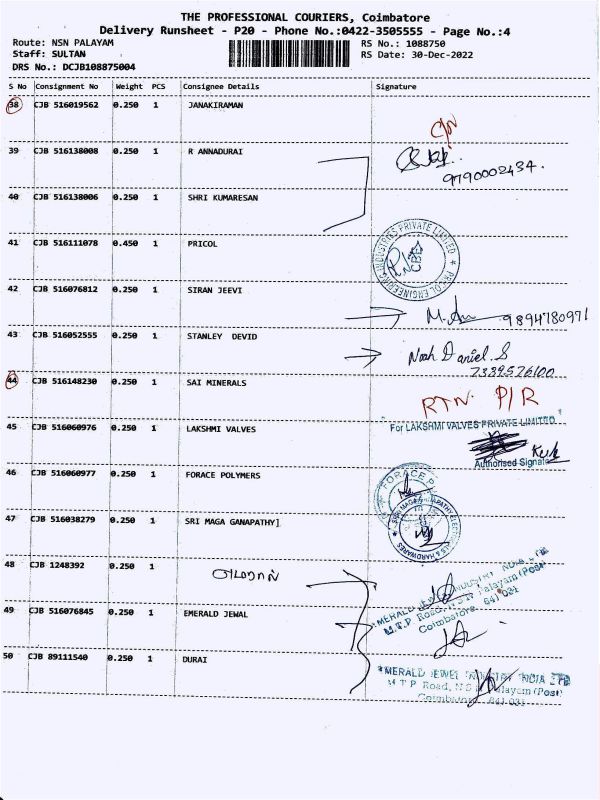 THE PROFESSIONAL COURIERS, Coimbatore
Delivery Runsheet - P20 - Phone No.:0422-3505555 - Page No.:4
Route: NSN PALAYAM
RS No.: 1088750
Staff: SULTAN
RS Date: 30-Dec-2022
DRS No.: DCJB108875004
S No Consignment No Weight PCS Consignee Details Signature
38 CJB 516019562 0.250 1 JANAKIRAMAN
39 CJB 516138008 0.250 1 R ANNADURAI
9790002434.
40 CJB 516138006 0.250 1 SHRI KUMARESAN
41 CJB 516111078 0.450 1 PRICOL
PRICOL ENGINEERING INDUSTRIES PRIVATE LIMITED
CBE
42 CJB 516076812 0.250 1 SIRAN JEEVI
9894780971
43 CJB 516052555 0.250 1 STANLEY DEVID
Noah Daniel S
7339526100
44 CJB 516148230 0.250 1 SAI MINERALS
RTN P/R
45 CJB 516060976 0.250 1 LAKSHMI VALVES
For LAKSHMI VALVES PRIVATE LIMITED
Authorised Signato
46 CJB 516060977 0.250 1 FORACE POLYMERS
FORACE P
47 CJB 516038279 0.250 1 SRI MAGA GANAPATHY]
48 CJB 1248392 0.250 1
49 CJB 516076845 0.250 1 EMERALD JEWAL
M.T.P. Road,
Coimbatore 641 031
50 CJB 89111540 0.250 1 DURAI
MERALD JEWEL INDUSTRY INDIA LTD
M T P Road, N S N Palayam (Post)
Coimbatore 641 031